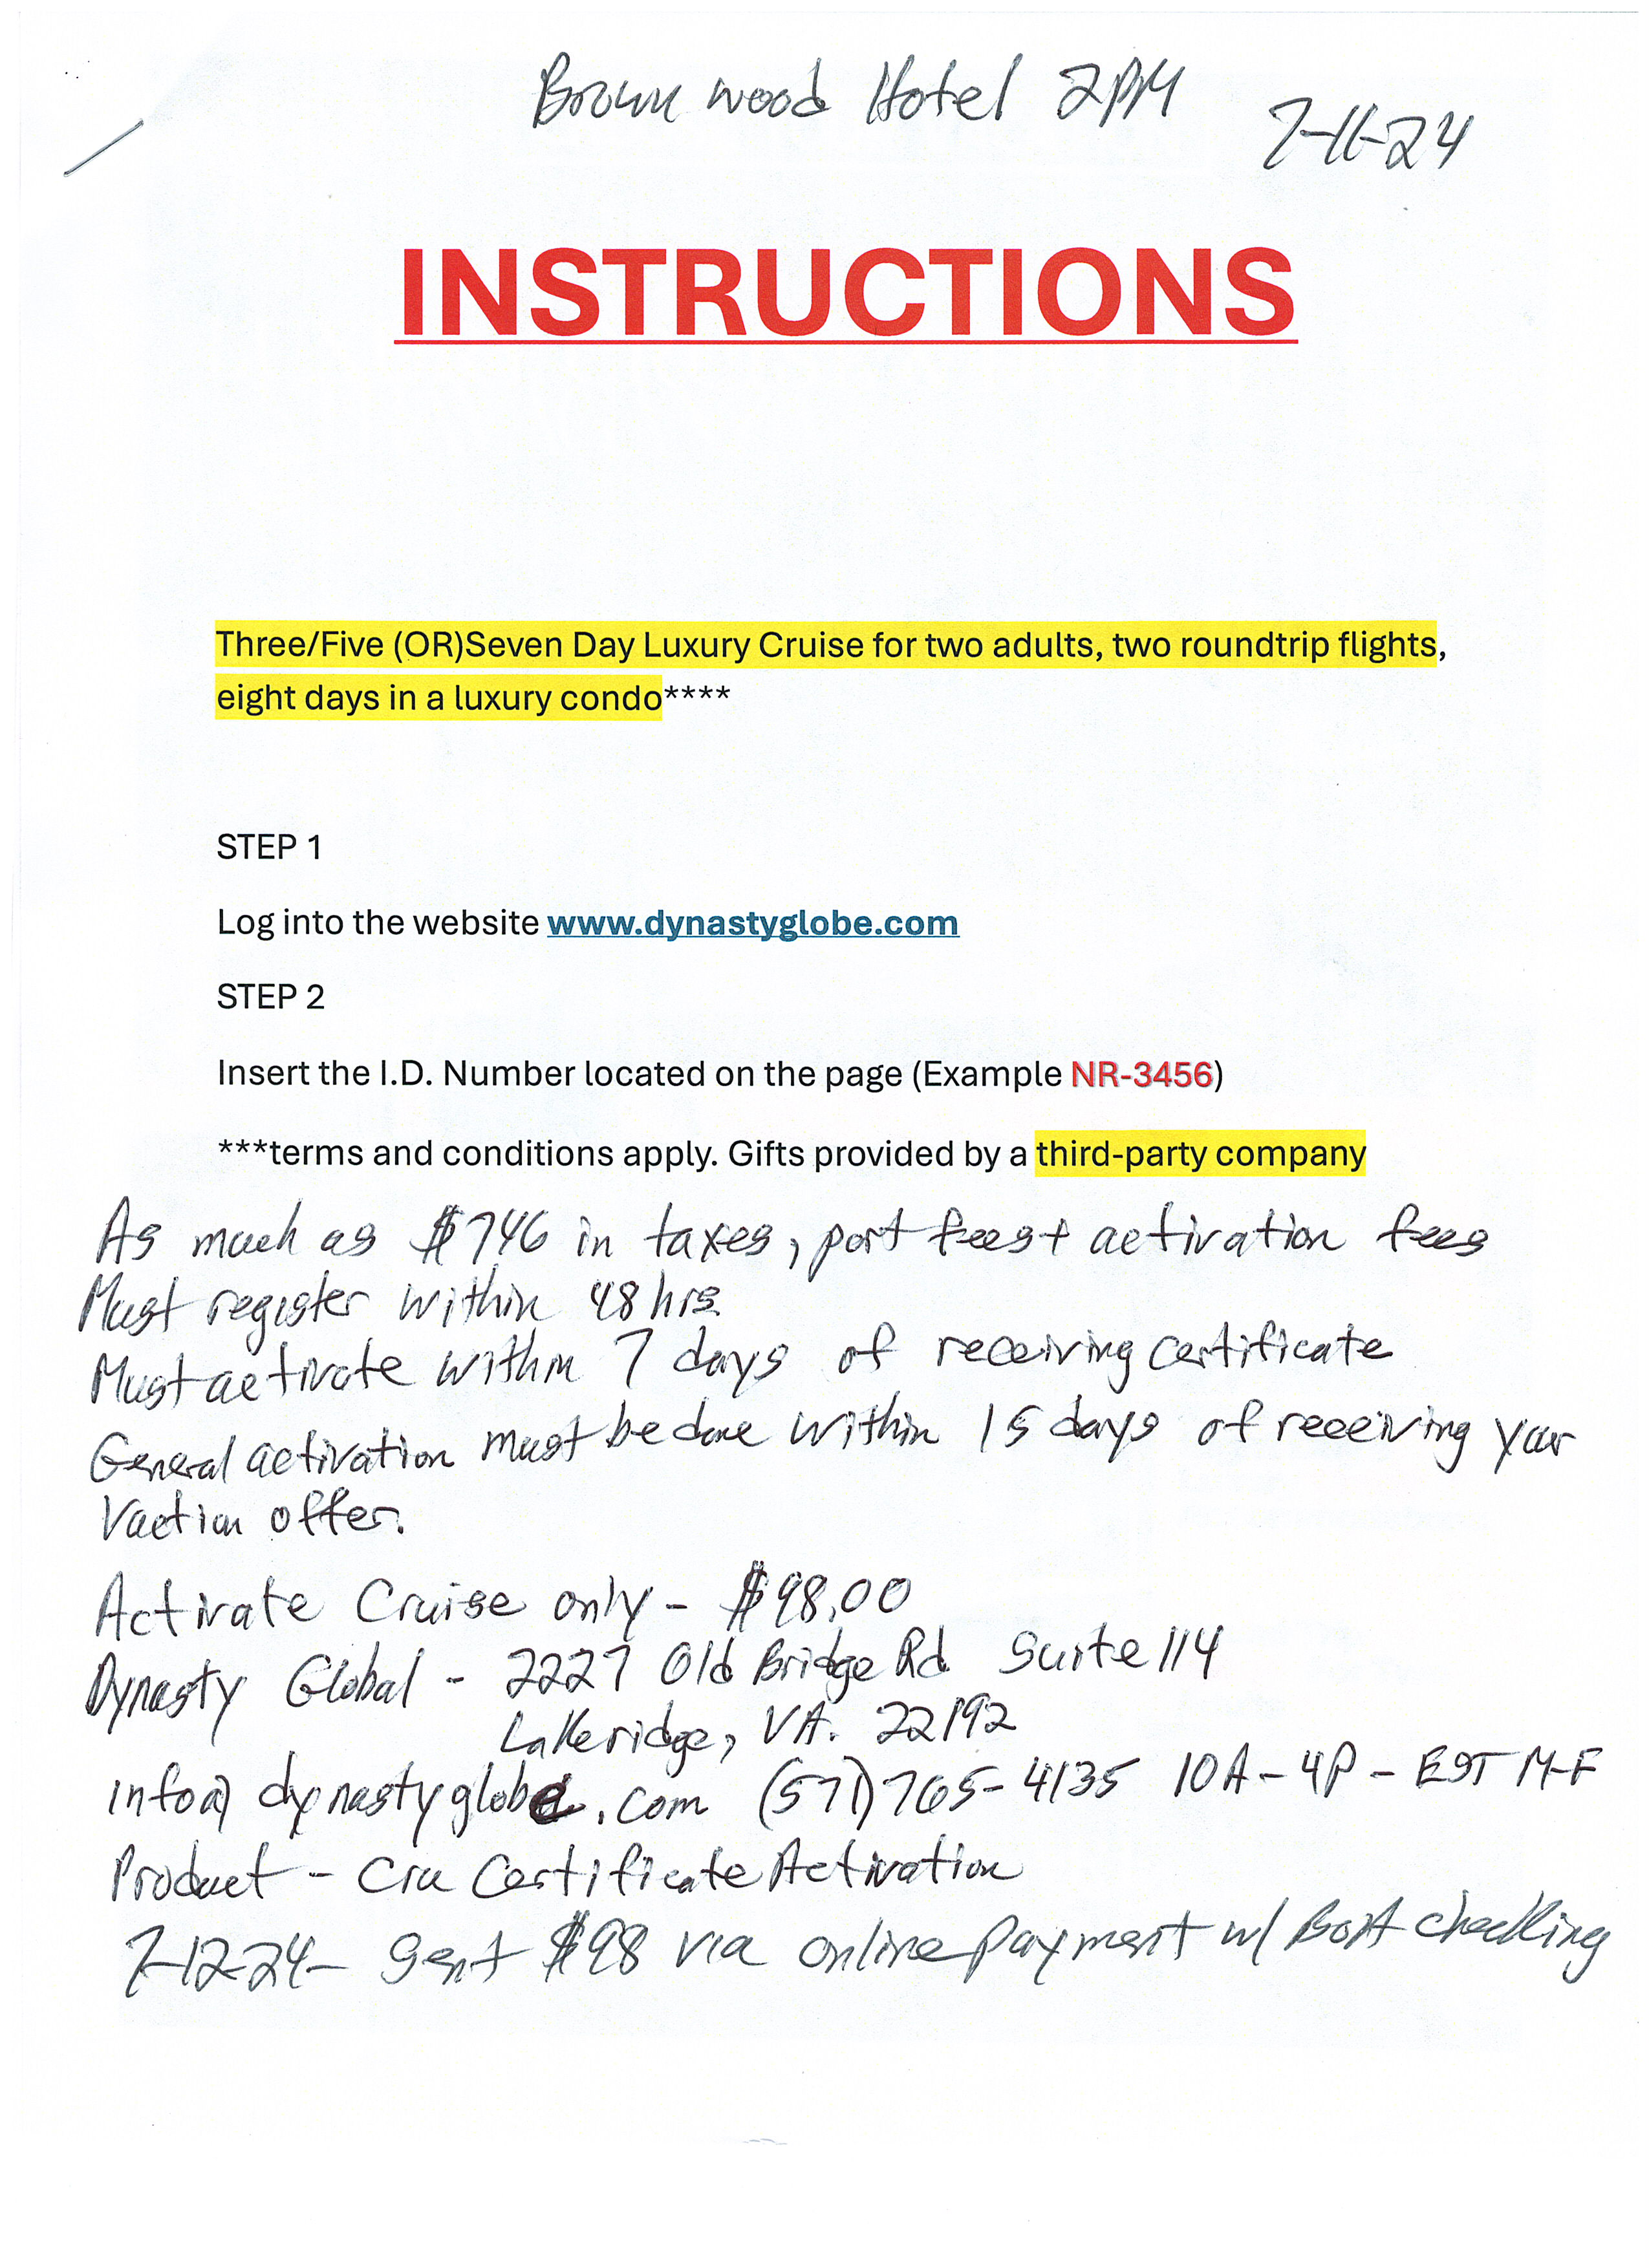 Brown wood Hotel 2PM
7-11-24
INSTRUCTIONS
Three/Five (OR)Seven Day Luxury Cruise for two adults, two roundtrip flights,
eight days in a luxury condo****
STEP 1
Log into the website www.dynastyglobe.com
STEP 2
Insert the I.D. Number located on the page (Example NR-3456)
***terms and conditions apply. Gifts provided by a third-party company
As much as $746 in taxes, port fees + activation fees
Must register within 48 hrs
Must activate within 7 days of receiving certificate
General activation must be done within 15 days of receiving your
Vaction offer.
Activate Cruise only - $98.00
Dynasty Global - 2227 Old Bridge Rd Suite 114
Lakeridge, VA. 22192
info@dynastyglobe.com (571) 765-4135 10A-4P-EST M-F
Product - Cru Certificate Activation
7-12-24- Sent $98 via online payment w/ BofA checking